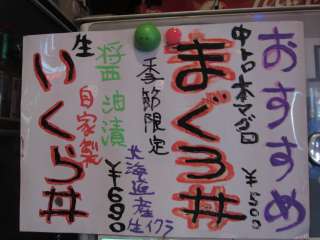 おすすめ
中トロ本マグロ
¥1500
まぐろ丼
季節限定
北海道産
生イクラ
醤油漬
¥1690
自家製
生
いくら丼